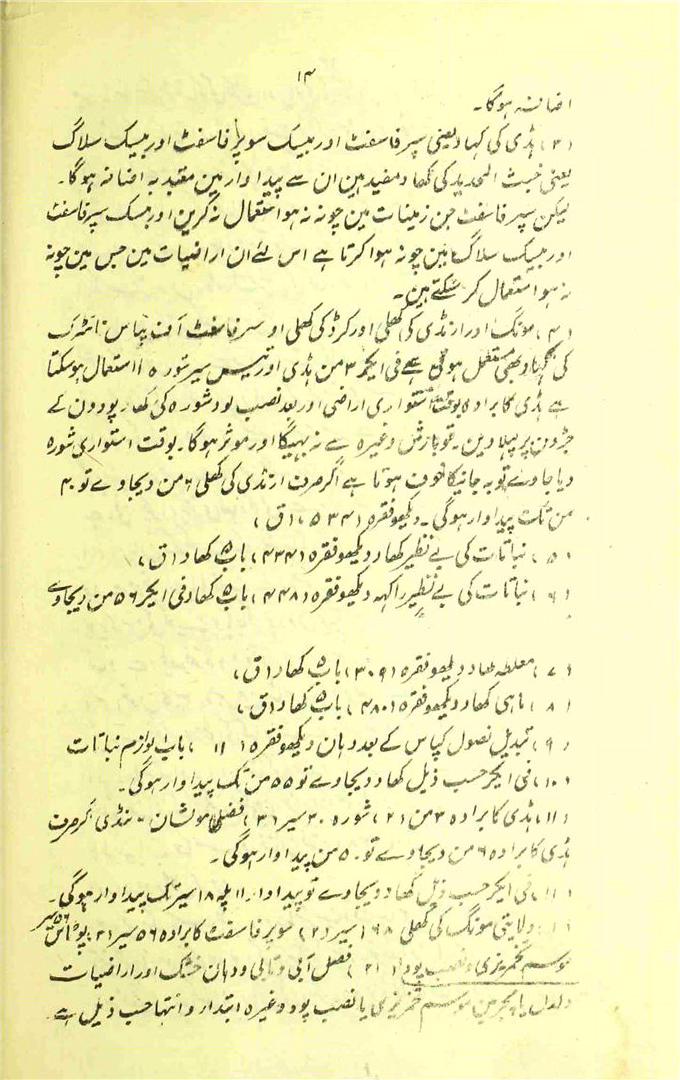 ۱۴
اضافہ ہوگا۔
(۳) ہڈی کی کہاد یعنی سپر فاسفٹ اور بیسک سوپر فاسفٹ اور بیسک سلاگ
یعنی خبث الحدید کی کھاد مفید ہین ان سے پیداوار مین معتدبہ اضافہ ہوگا۔
لیکن سپر فاسفٹ جن زمینات مین چونہ نہ ہو استعمال نہ کرین اور بیسک سپر فاسفٹ
اور بیسک سلاگ مین چونہ ہوا کرتا ہے اس لئے ان اراضیات مین جس مین چونہ
نہ ہو استعمال کر سکتے ہین۔
(۴) مونگ اور ارنڈی کی کھلی اور کرڑ کی کھلی او سپر فاسفٹ آف پٹاس نائٹرک
کی کہاد بھی مستعمل ہوتی ہے فی ایکر ۳ من ہڈی اور تیس سیر شورہ استعمال ہوسکتا
ہے ہڈی کا برادہ بوقت استواری اراضی اور بعد نصب پود شورہ کی کھاد پودون کے
جڑون پر پہلا دین۔ تو بارش وغیرہ سے نہ بہیگا اور موثر ہوگا۔ بوقت استواری شورہ
دیا جاوے تو بہ جانیکا خوف ہوتا ہے اگر صرف ارنڈی کی کھلی ۶ من دیجاوے تو ۴۰
من تک پیداوار ہوگی۔ دیکھو فقرہ (۵۳۴) (ق)
(۵) نباتات کی بے نظیر کھاد دیکھو فقرہ (۴۳۴) باب ۵ کھاد (ق)
(۶) نباتات کی بے نظیر راکہہ دیکھو فقرہ (۴۴۸) باب ۵ کھاد فی ایکر ۵۶ من دیجاوے
(۷) مغلطہ کھاد دیکھو فقرہ (۳۰۹) باب ۵ کھاد (ق)
(۸) ماہی کھاد دیکھو فقرہ (۴۸۰) باب ۵ کھاد (ق)
(۹) تبدیل فصول کپاس کے بعد دہان دیکھو فقرہ (۱۱) باب لوازم نباتات
(۱۰) فی ایکر حسب ذیل کھاد دیجاوے تو ۵۵ من تک پیداوار ہوگی۔
(۱) ہڈی کا برادہ ۳ من (۲) شورہ ۳۰ سیر (۳) فضلہ مویشان۔ منڈی گر صرف
ہڈی کا برادہ ۶ من دیجاوے تو ۵۰ من پیداوار ہوگی۔
(۱۱) فی ایکر حسب ذیل کھاد دیجاوے تو پیداوار ۱۱ پلہ ۱۸ سیر تک پیداوار ہوگی۔
(۱) ولایتی مونگ کی کھلی ۱۶۸ سیر (۲) سوپر فاسفٹ کا برادہ ۵۶ سیر (۳) پوٹاس ۵۶ سیر
موسم تخمریزی و نصب پود (۱۲) فصل آبی و تابی و دہان خشک اور اراضیات
دلدل یا کیچڑ مین موسم تخمریزی یا نصب پود وغیرہ ابتدا و انتہا حسب ذیل ہے۔